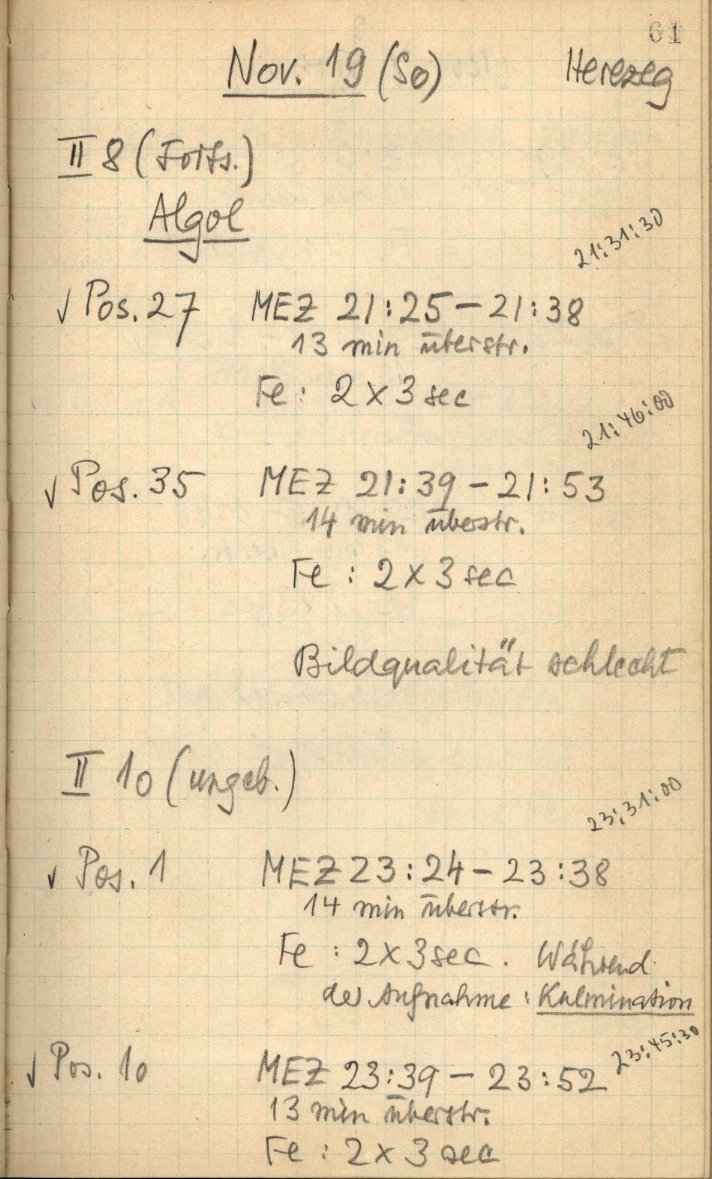 61
Nov. 19 (So) Herczeg
II 8 (Forts.)
Algol
21:31:30
√ Pos. 27 MEZ 21:25 – 21:38
13 min überstr.
Fe: 2 x 3 sec
21:46:00
√ Pos. 35 MEZ 21:39 – 21:53
14 min überstr.
Fe : 2 x 3 sec
Bildqualität schlecht
II 10 (ungeb.)
23:31:00
√ Pos. 1 MEZ 23:24 – 23:38
14 min überstr.
Fe : 2 x 3 sec. Während
der Aufnahme : Kulmination
23:45:30
√ Pos. 10 MEZ 23:39 – 23:52
13 min überstr.
Fe : 2 x 3 sec